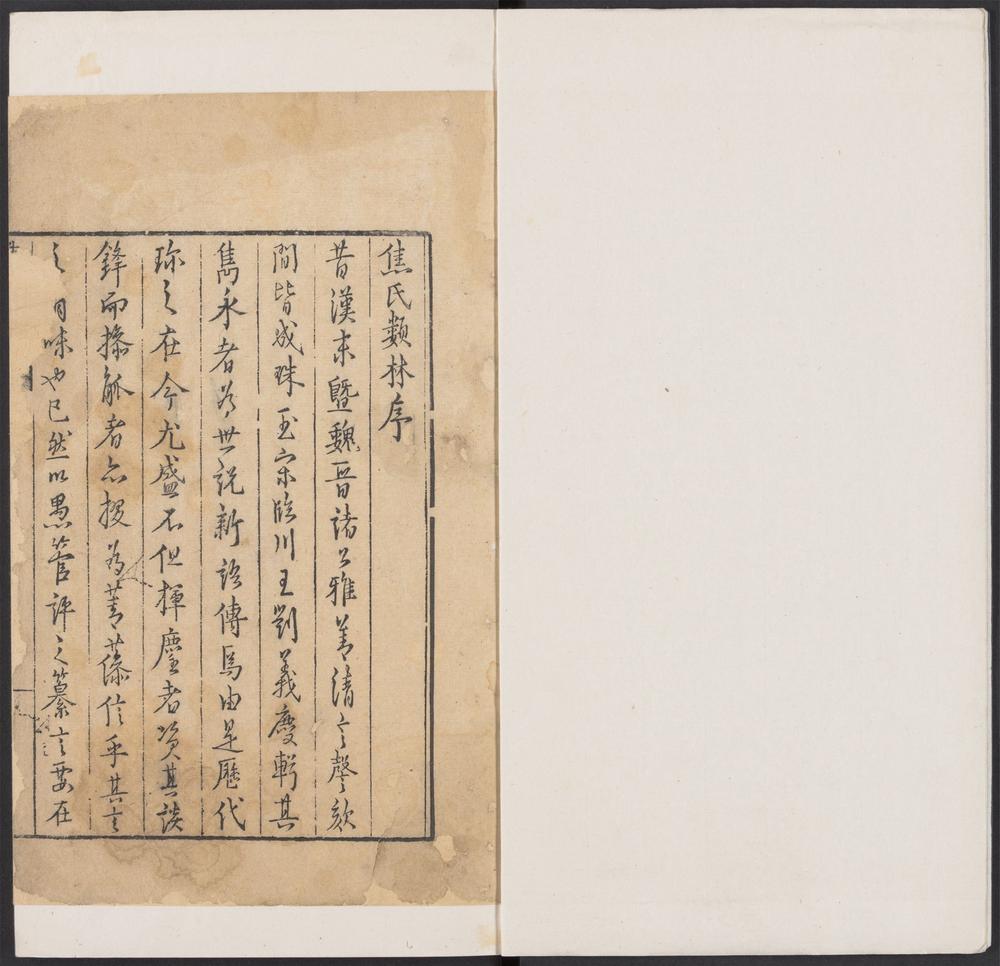 焦氏類林序
昔漢末曁魏晉諸公雅善清言謦欬
間皆成珠玉宋臨川王劉義慶輯其
雋永者為世說新語傳焉由是歷代
珎之在今尤盛不但揮麈者資其談
鋒而操觚者亦掇為菁藻信乎其言
之 目味也已然以愚管評之纂言要在